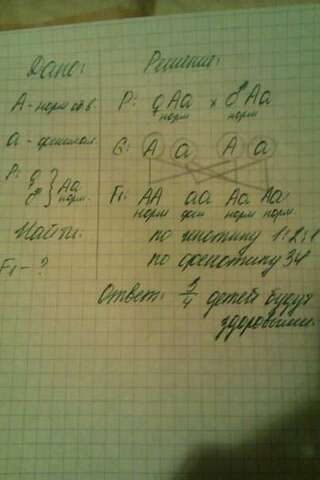 Дано:
А - норм. обв.
а - фенилал.
P: ♀
♂ } Aa
норм.
Найти:
F₁ - ?
Решение:
P: ♀ Aa x ♂ Aa
норм норм
G: A a A a
F₁ AA aa Aa Aa
норм фен норм норм.
по генотипу 1:2:1
по фенотипу 3:1
Ответ: 3/4 детей будут
здоровыми.